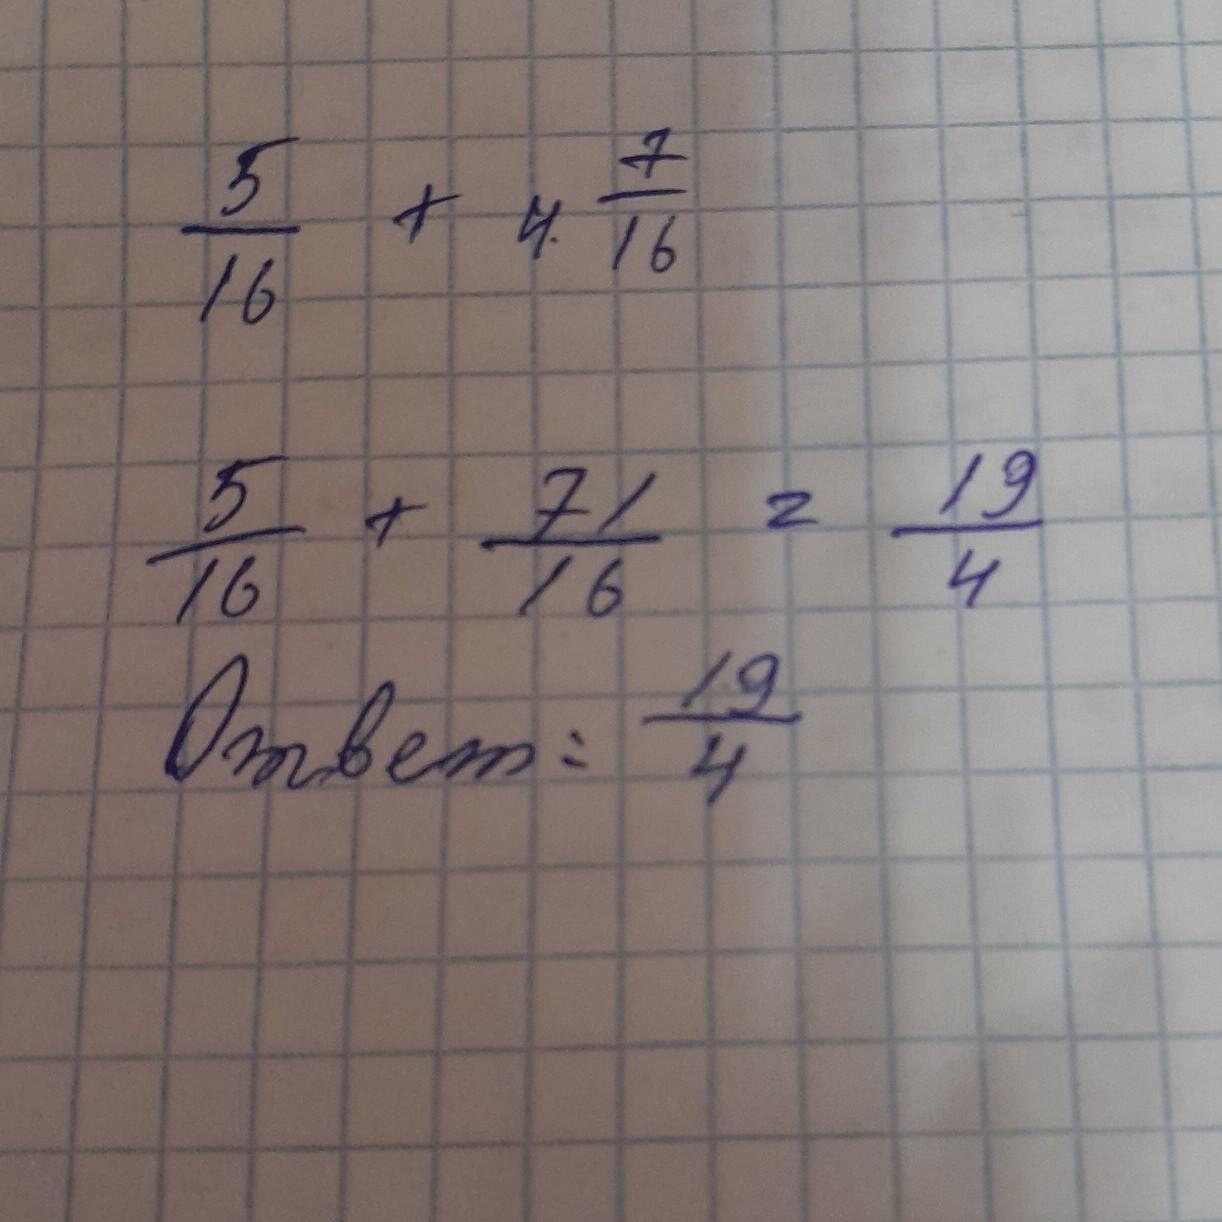 5/16 + 4 7/16
5/16 + 71/16 = 19/4
Ответ: 19/4